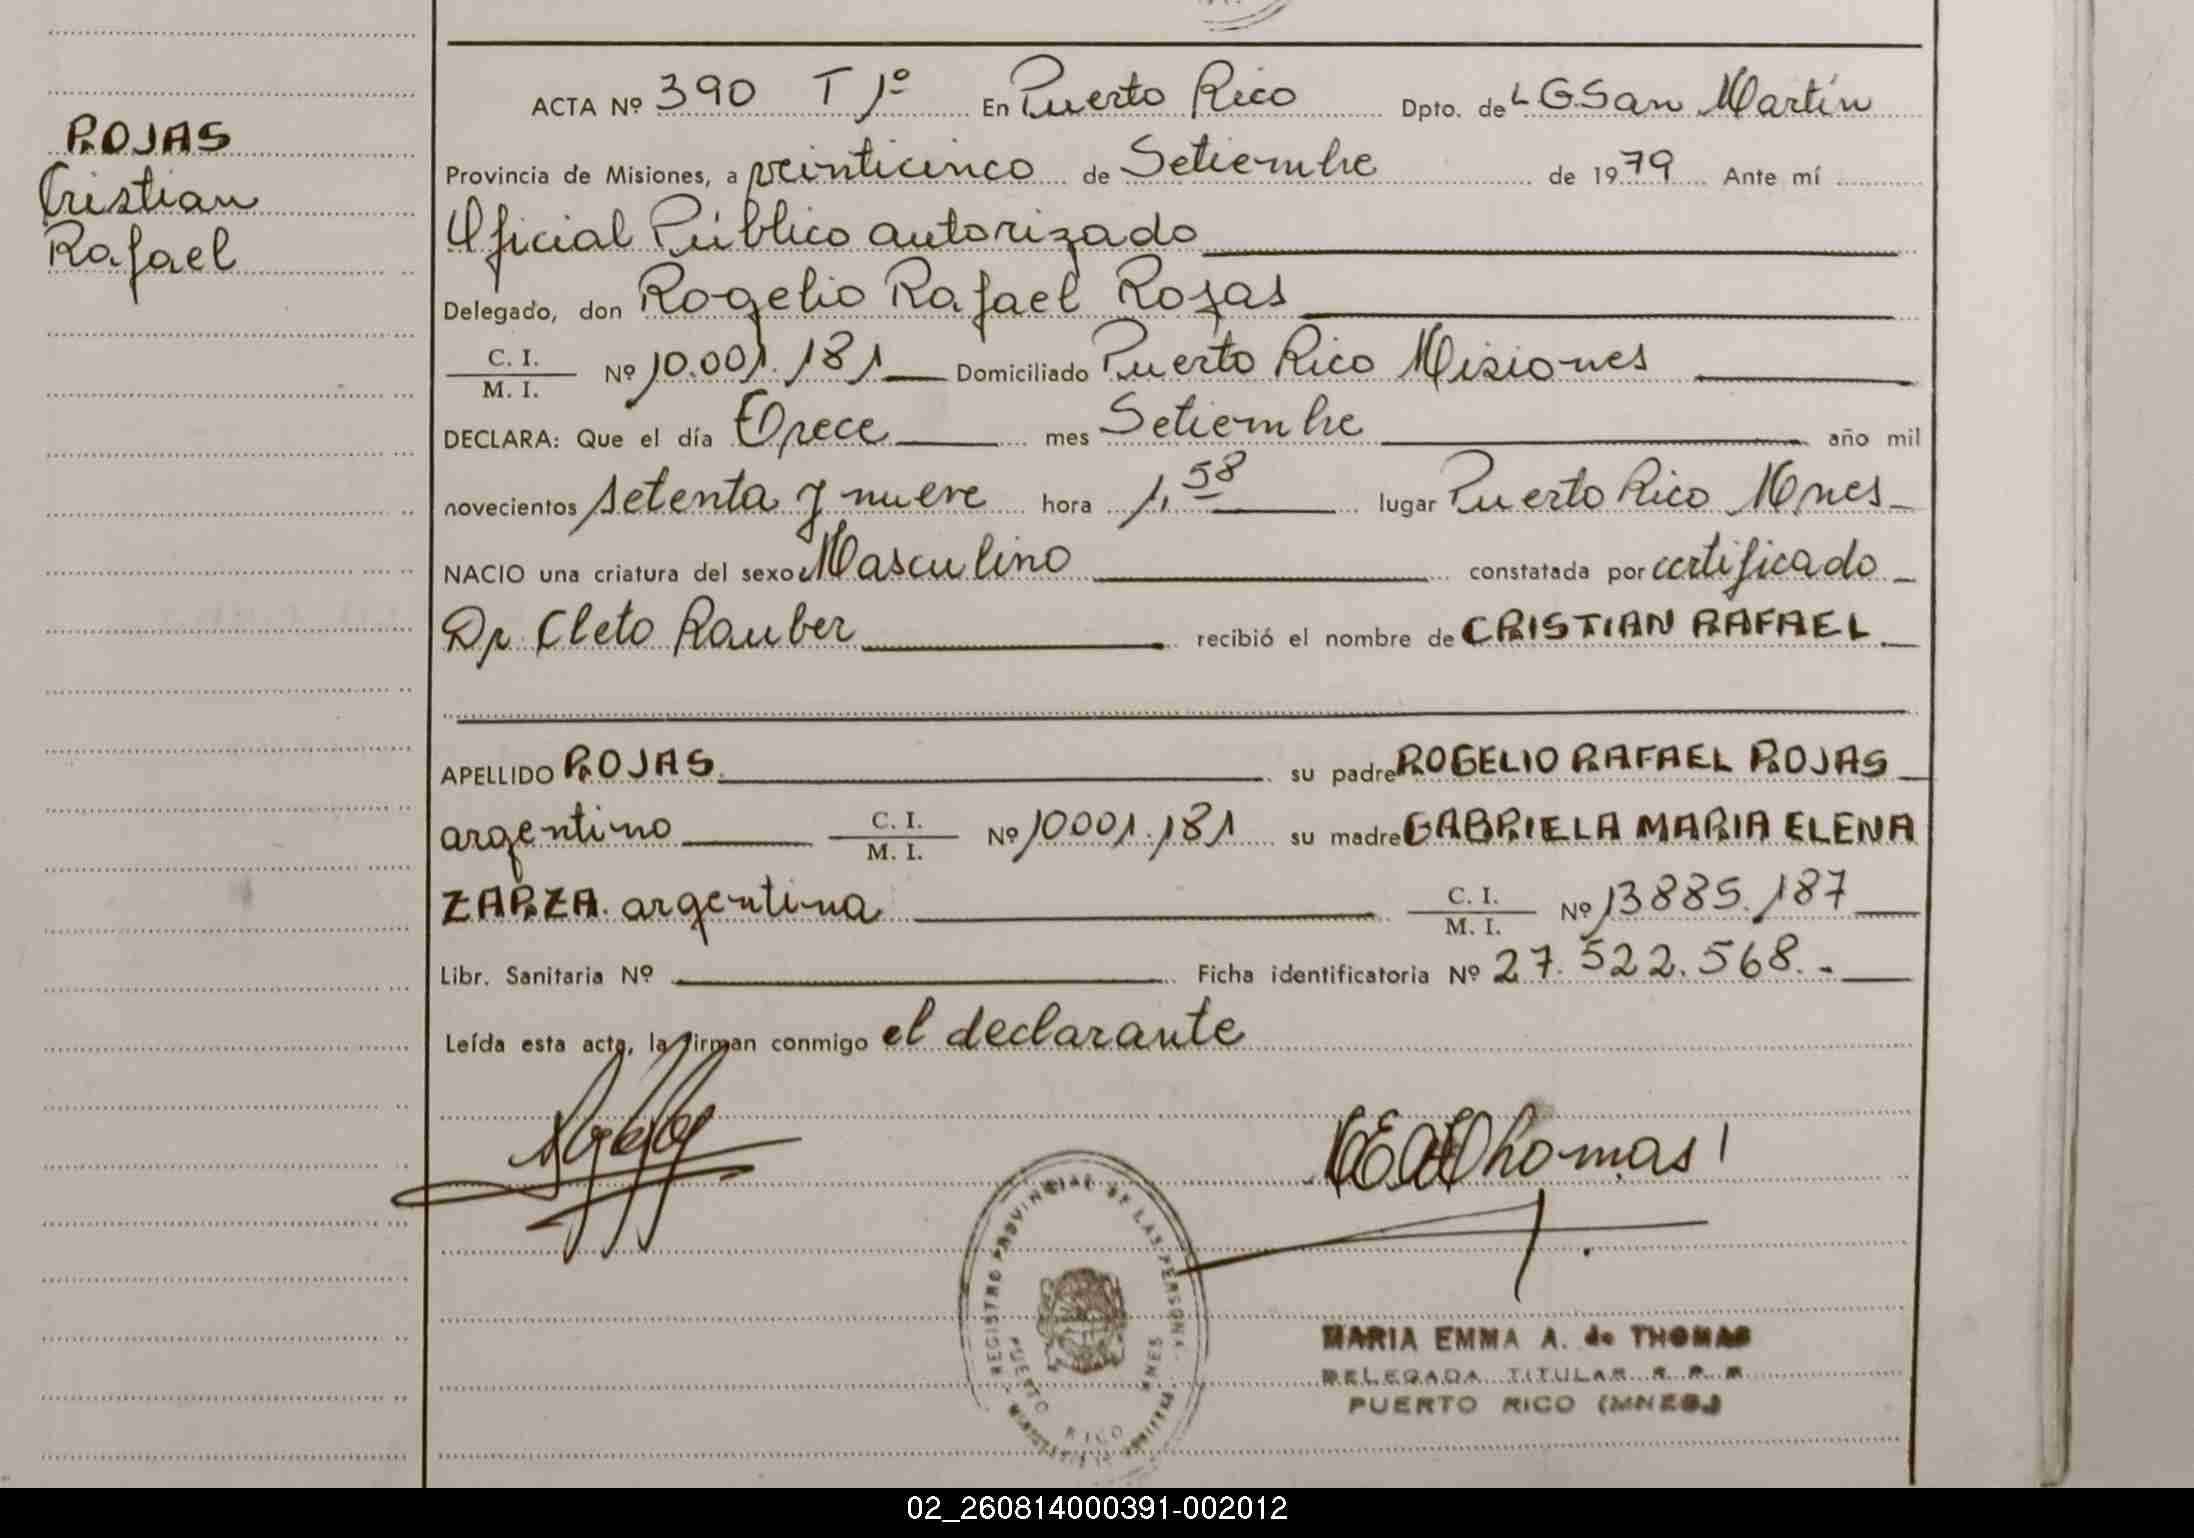 ROJAS
Cristian
Rafael
ACTA Nº 390 T 1º En Puerto Rico Dpto. de L G San Martín
Provincia de Misiones, a veinticinco de Setiembre de 1979 Ante mí
Oficial Público autorizado
Delegado, don Rogelio Rafael Rojas
C. I.
M. I.
Nº 10.001.181 Domiciliado Puerto Rico Misiones
DECLARA: Que el día Trece mes Setiembre año mil
novecientos setenta y nueve hora 1,58 lugar Puerto Rico Mnes
NACIO una criatura del sexo Masculino constatada por certificado
Dr. Cleto Rauber recibió el nombre de CRISTIAN RAFAEL
APELLIDO ROJAS su padre ROGELIO RAFAEL ROJAS
argentino C. I.
M. I.
Nº 10001.181 su madre GABRIELA MARIA ELENA
ZARZA. argentina C. I.
M. I.
Nº 13885.187
Libr. Sanitaria Nº Ficha identificatoria Nº 27.522.568.-
Leída esta acta, la firman conmigo el declarante
Thomas
REGISTRO PROVINCIAL DE LAS PERSONAS
PUERTO RICO MNES
MARIA EMMA A. de THOMAS
DELEGADA TITULAR R. P. P.
PUERTO RICO (MNES.)
02_260814000391-002012